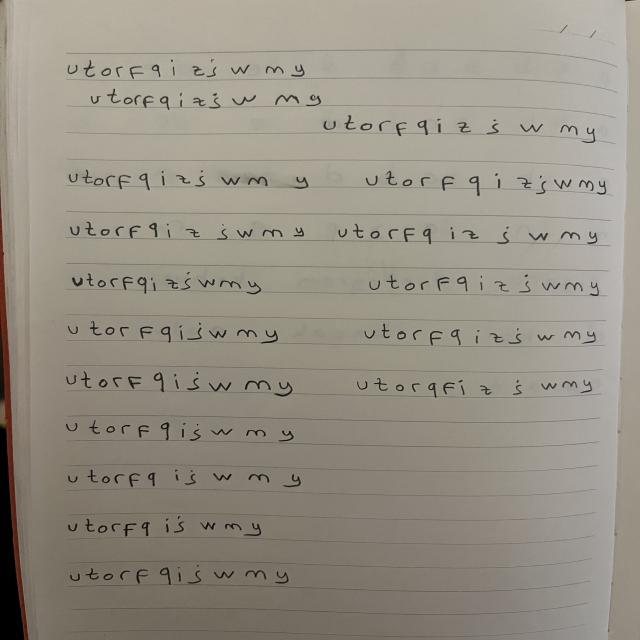 utorfqi zś w my
utorfqizś w my
utorfqi z ś w my
utorf q i z ś w m y utorf q i z ś w my
utorf q i z ś w m y utorfq iz ś w m y
utorfqi zś w m y utorf q i z ś w m y
u tor f q i ś w m y utorf q i z ś w m y
utorf q i ś w m y utorqfi z ś w m y
u torf q i ś w m y
u torf q i ś w m y
utorfq i ś w m y
utorf q i ś w m y